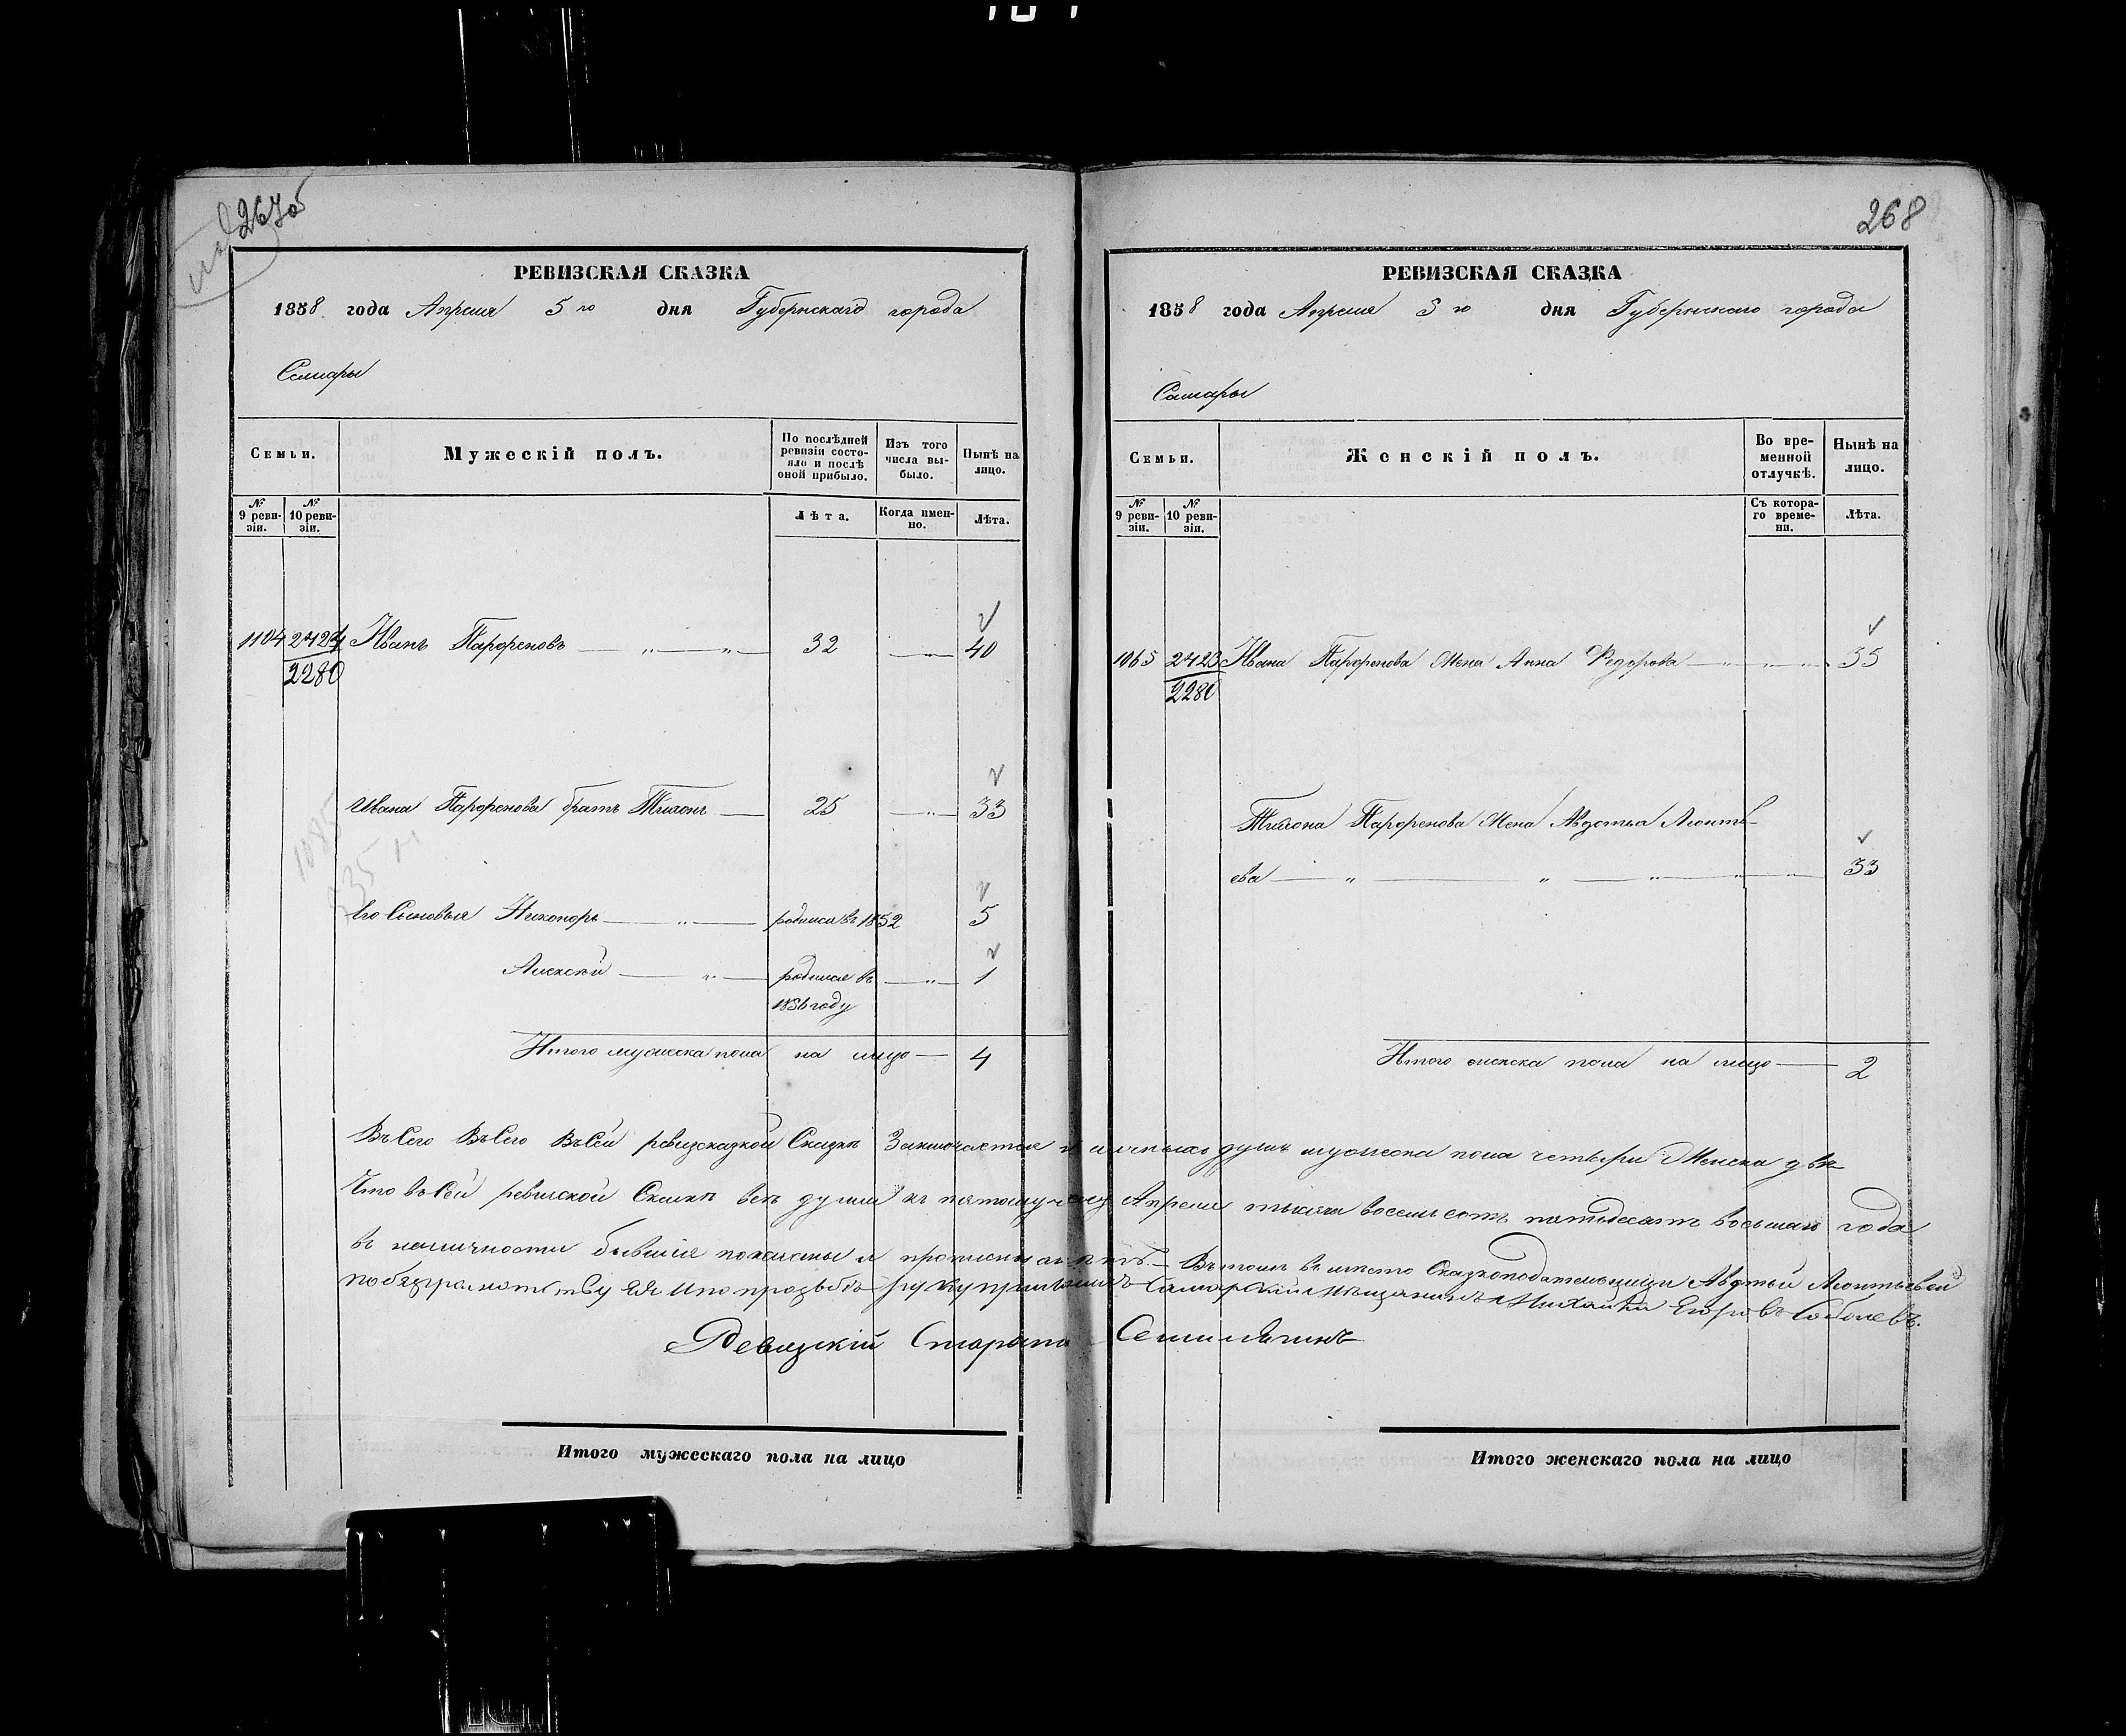 267об
РЕВИЗСКАЯ СКАЗКА
1858 года Апреля 5го дня Губернскаго города
Самары
Семьи.
Мужескій полъ.
По послѣдней ревизіи состояло и послѣ оной прибыло.
Изъ того числа выбыло.
Нынѣ на лицо.
№ 9 ревизіи.
№ 10 ревизіи.
Лѣта.
Когда именно.
Лѣта.
1104 2424 Иванъ Парфеновъ 32 40
2280
Ивана Парфенова братъ Тихонъ 25 33
Его Сыновья Никоноръ родился въ 1852 5
Алексѣй родился въ 1856 году 1
Итого мужеска пола на лицо 4
268
РЕВИЗСКАЯ СКАЗКА
1858 года Апреля 5го дня Губернскаго города
Самары
Семьи.
Женскій полъ.
Во временной отлучкѣ.
Нынѣ на лицо.
№ 9 ревизіи.
№ 10 ревизіи.
Съ котораго времени.
Лѣта.
1065 2423 Ивана Парфенова Жена Анна Федорова 35
2280
Тихона Парфенова Жена Авдотья Леонть-
ева 33
Итого женска пола на лицо 2
ВъСего ВъСего ВъСей ревизсказкой Сказкѣ Заключается наличныхъ душъ мужеска пола четыри Женска двѣ
Что въСей ревиской Сказкѣ всѣ души къ пятому числу Апреля тысяча восемьсотъ пятьдесятъ восьмаго года
въ наличности бывшія показаны и прописныхъ нѣтъ. Въ томъ вместо Сказкоподательницы Авдотьи Леонтьевой
побезграмотству ея ипо прозьбѣ руку приложилъ Самарскій мѣщанинъ Михайла Егоровъ Соболевъ.
Ревизкій Староста
Итого мужескаго пола на лицо
Итого женскаго пола на лицо